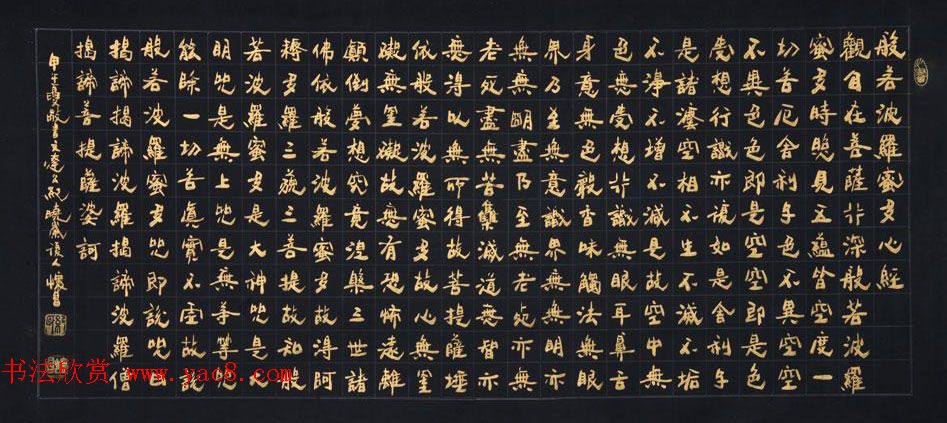 般若波羅蜜多心經
觀自在菩薩行深般若波羅
蜜多時照見五蘊皆空度一
切苦厄舍利子色不異空空
不異色色即是空空即是色
受想行識亦復如是舍利子
是諸法空相不生不滅不垢
不淨不增不減是故空中無
色無受想行識無眼耳鼻舌
身意無色聲香味觸法無眼
界乃至無意識界無無明亦
無無明盡乃至無老死亦無
老死盡無苦集滅道無智亦
無得以無所得故菩提薩埵
依般若波羅蜜多故心無罣
礙無罣礙故無有恐怖遠離
顛倒夢想究竟涅槃三世諸
佛依般若波羅蜜多故得阿
耨多羅三藐三菩提故知般
若波羅蜜多是大神咒是大
明咒是無上咒是無等等咒
能除一切苦真實不虛故說
般若波羅蜜多咒即說咒曰
揭諦揭諦波羅揭諦波羅僧
揭諦菩提薩婆訶
敬書
书法欣赏 www.yac8.com